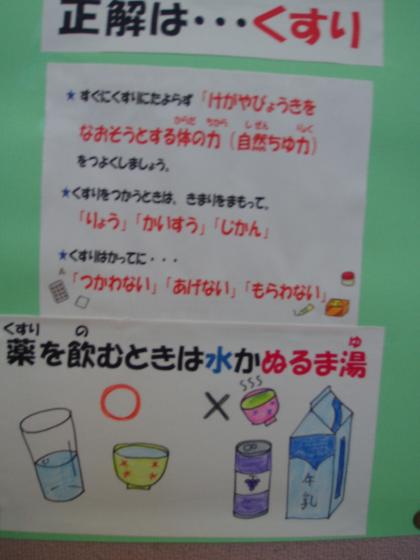 正解は・・・くすり
★すぐにくすりにたよらず「けがやびょうきを
からだ ちから しぜん りょく
なおそうとする体の力（自然ちゆ力）
をつよくしましょう。
★くすりをつかうときは、きまりをまもって。
「りょう」「かいすう」「じかん」
★くすりはかってに・・・
「つかわない」「あげない」「もらわない」
くすり の ゆ
薬を飲むときは水かぬるま湯
牛乳